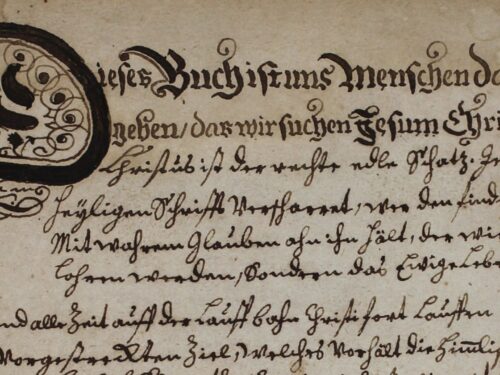 Dieses Buch ist uns Menschen da
geben / das wir suchen Jesum Chri
Christus ist der rechte edle Schatz. In
Heyligen Schrifft Verscharret, wer den find
Mit wahrem Glauben ahn ihn hält, der wi
lohren werden, Sondern das Ewige Lebe
nd alle Zeit auff der Lauffbahn Christi fort Lauffen
Vorgestreckten Ziel, welches Vorhält die Himmli